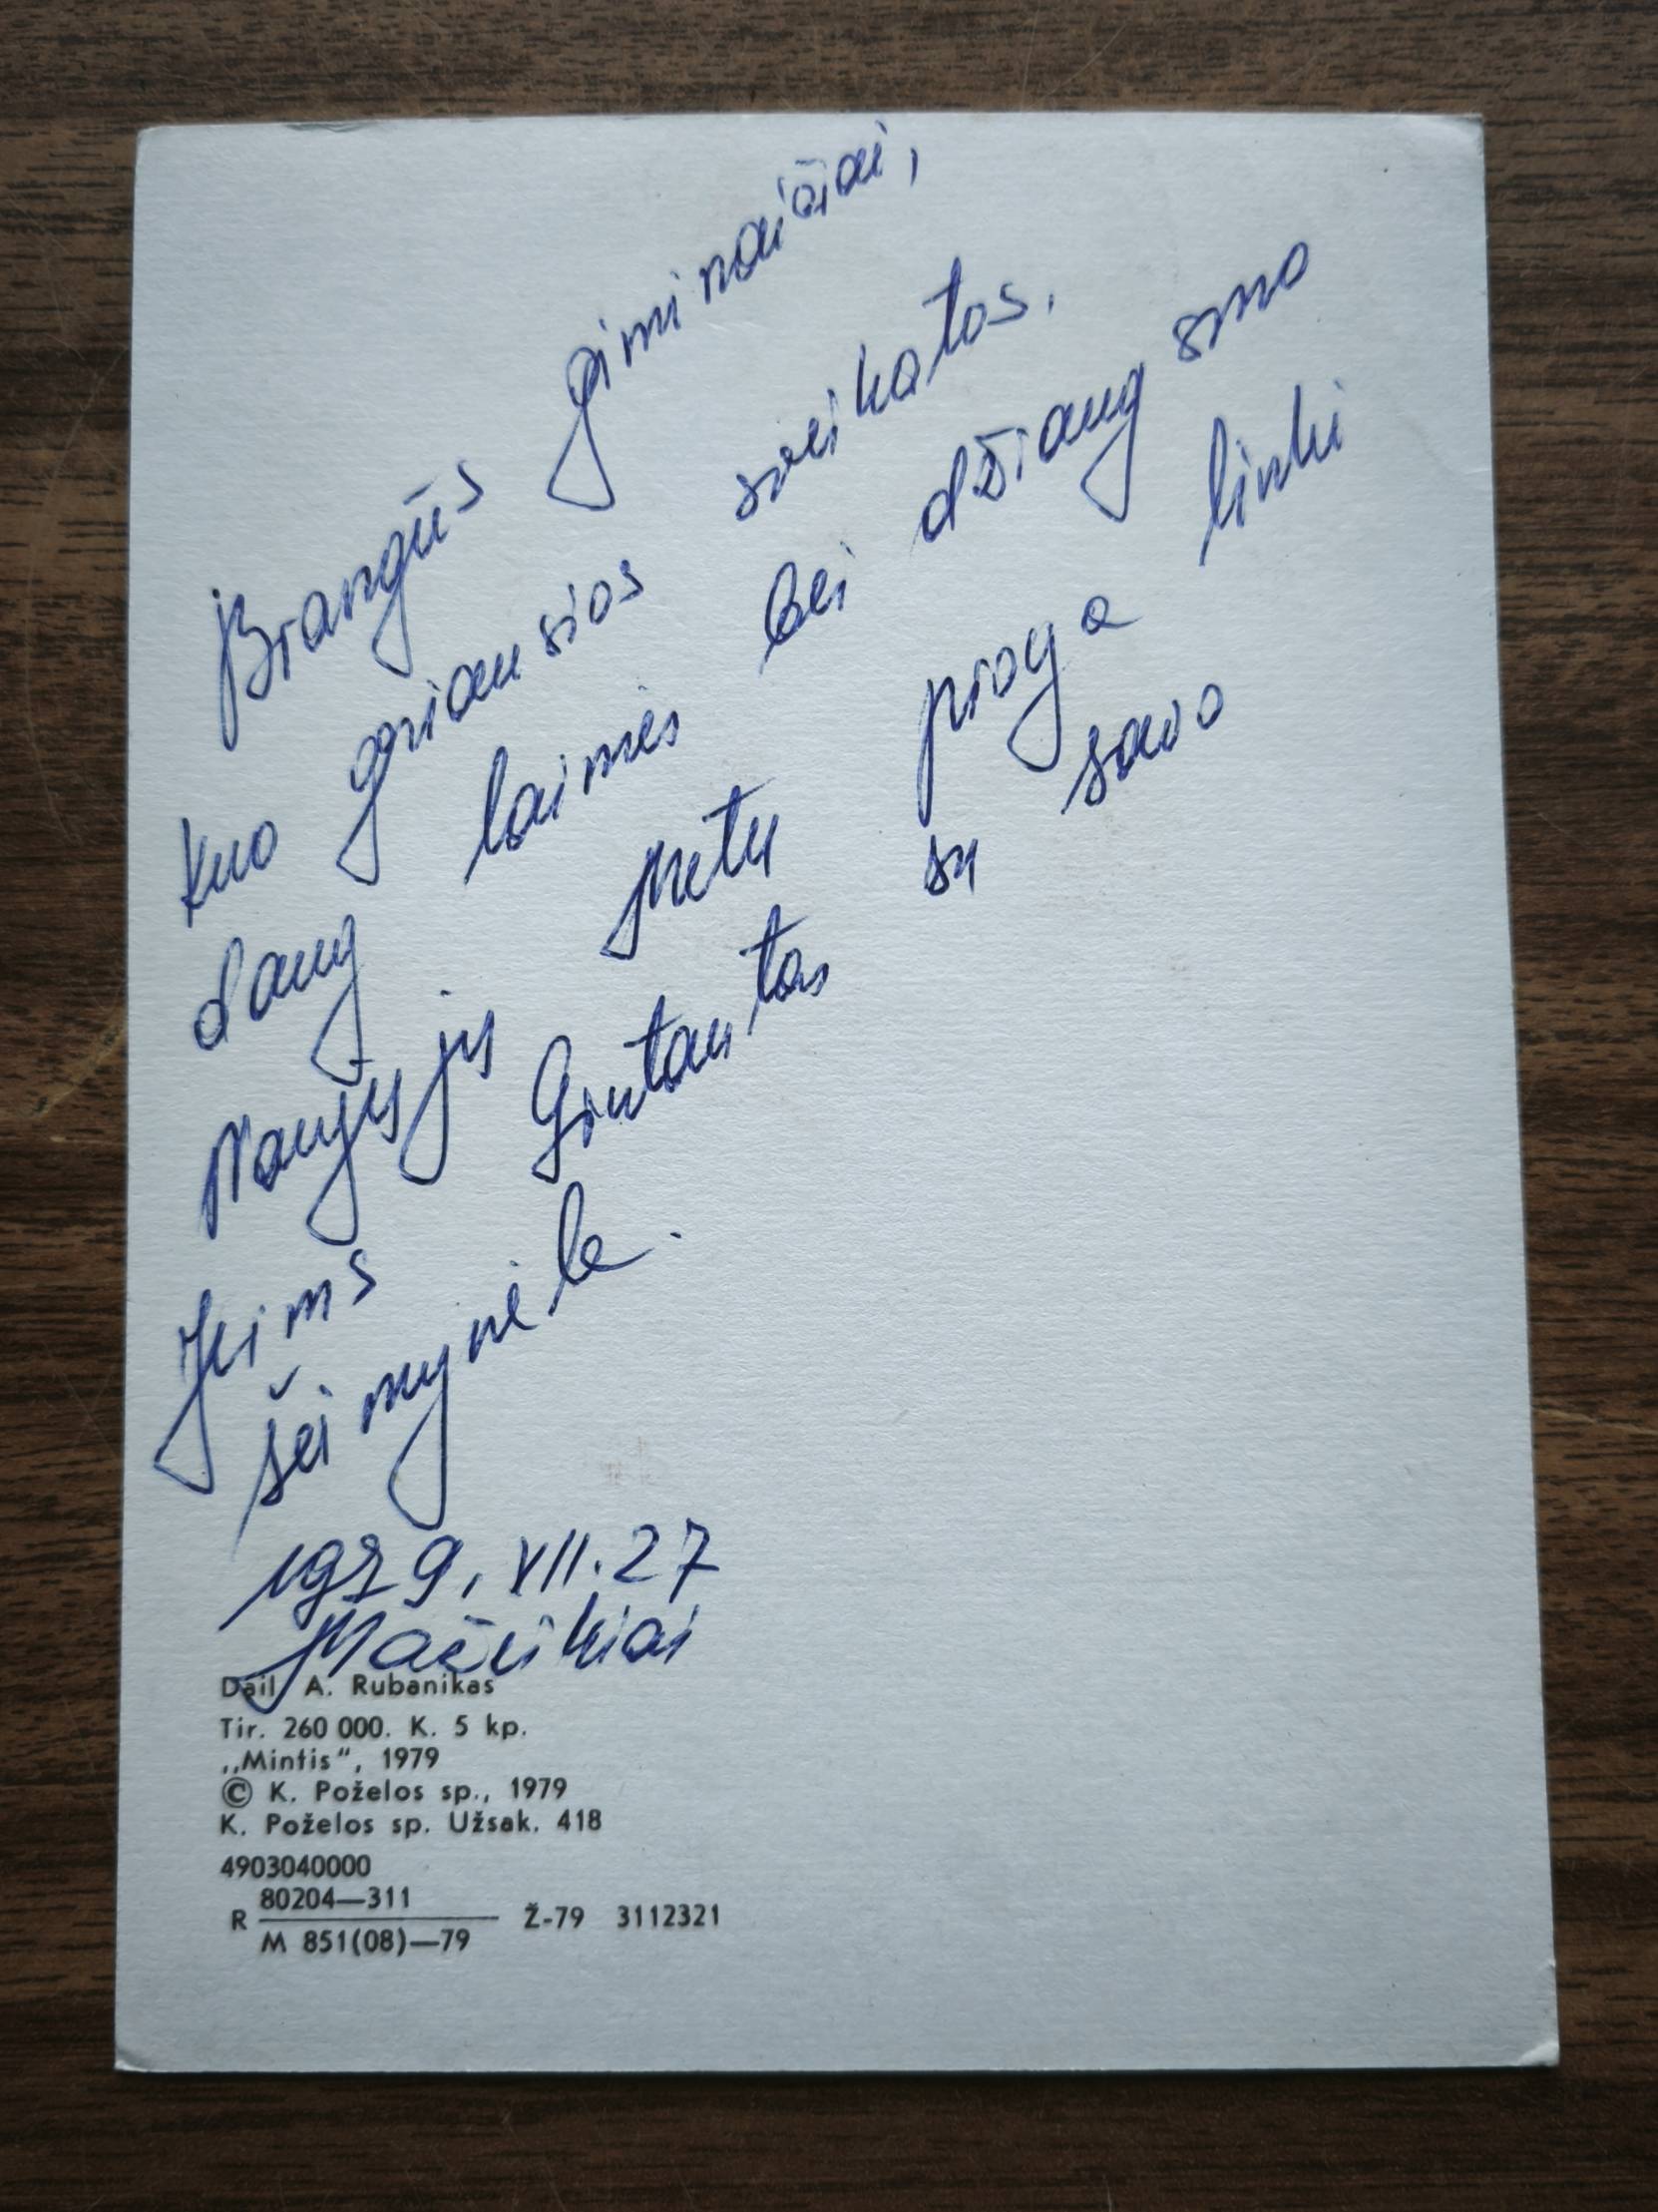 Brangūs giminaičiai,
kuo geriausios sveikatos,
daug laimės bei džiaugsmo
Naujųjų metų proga linki
Jums Gintautas su savo
šeimynėle.
1979, XII.27
Mačeikiai
Dail. A. Rubanikas
Tir. 260 000. K. 5 kp.
„Mintis“, 1979
© K. Poželos sp., 1979
K. Poželos sp. Užsak. 418
4903040000
R 80204—311
M 851(08)—79 Ž-79 3112321